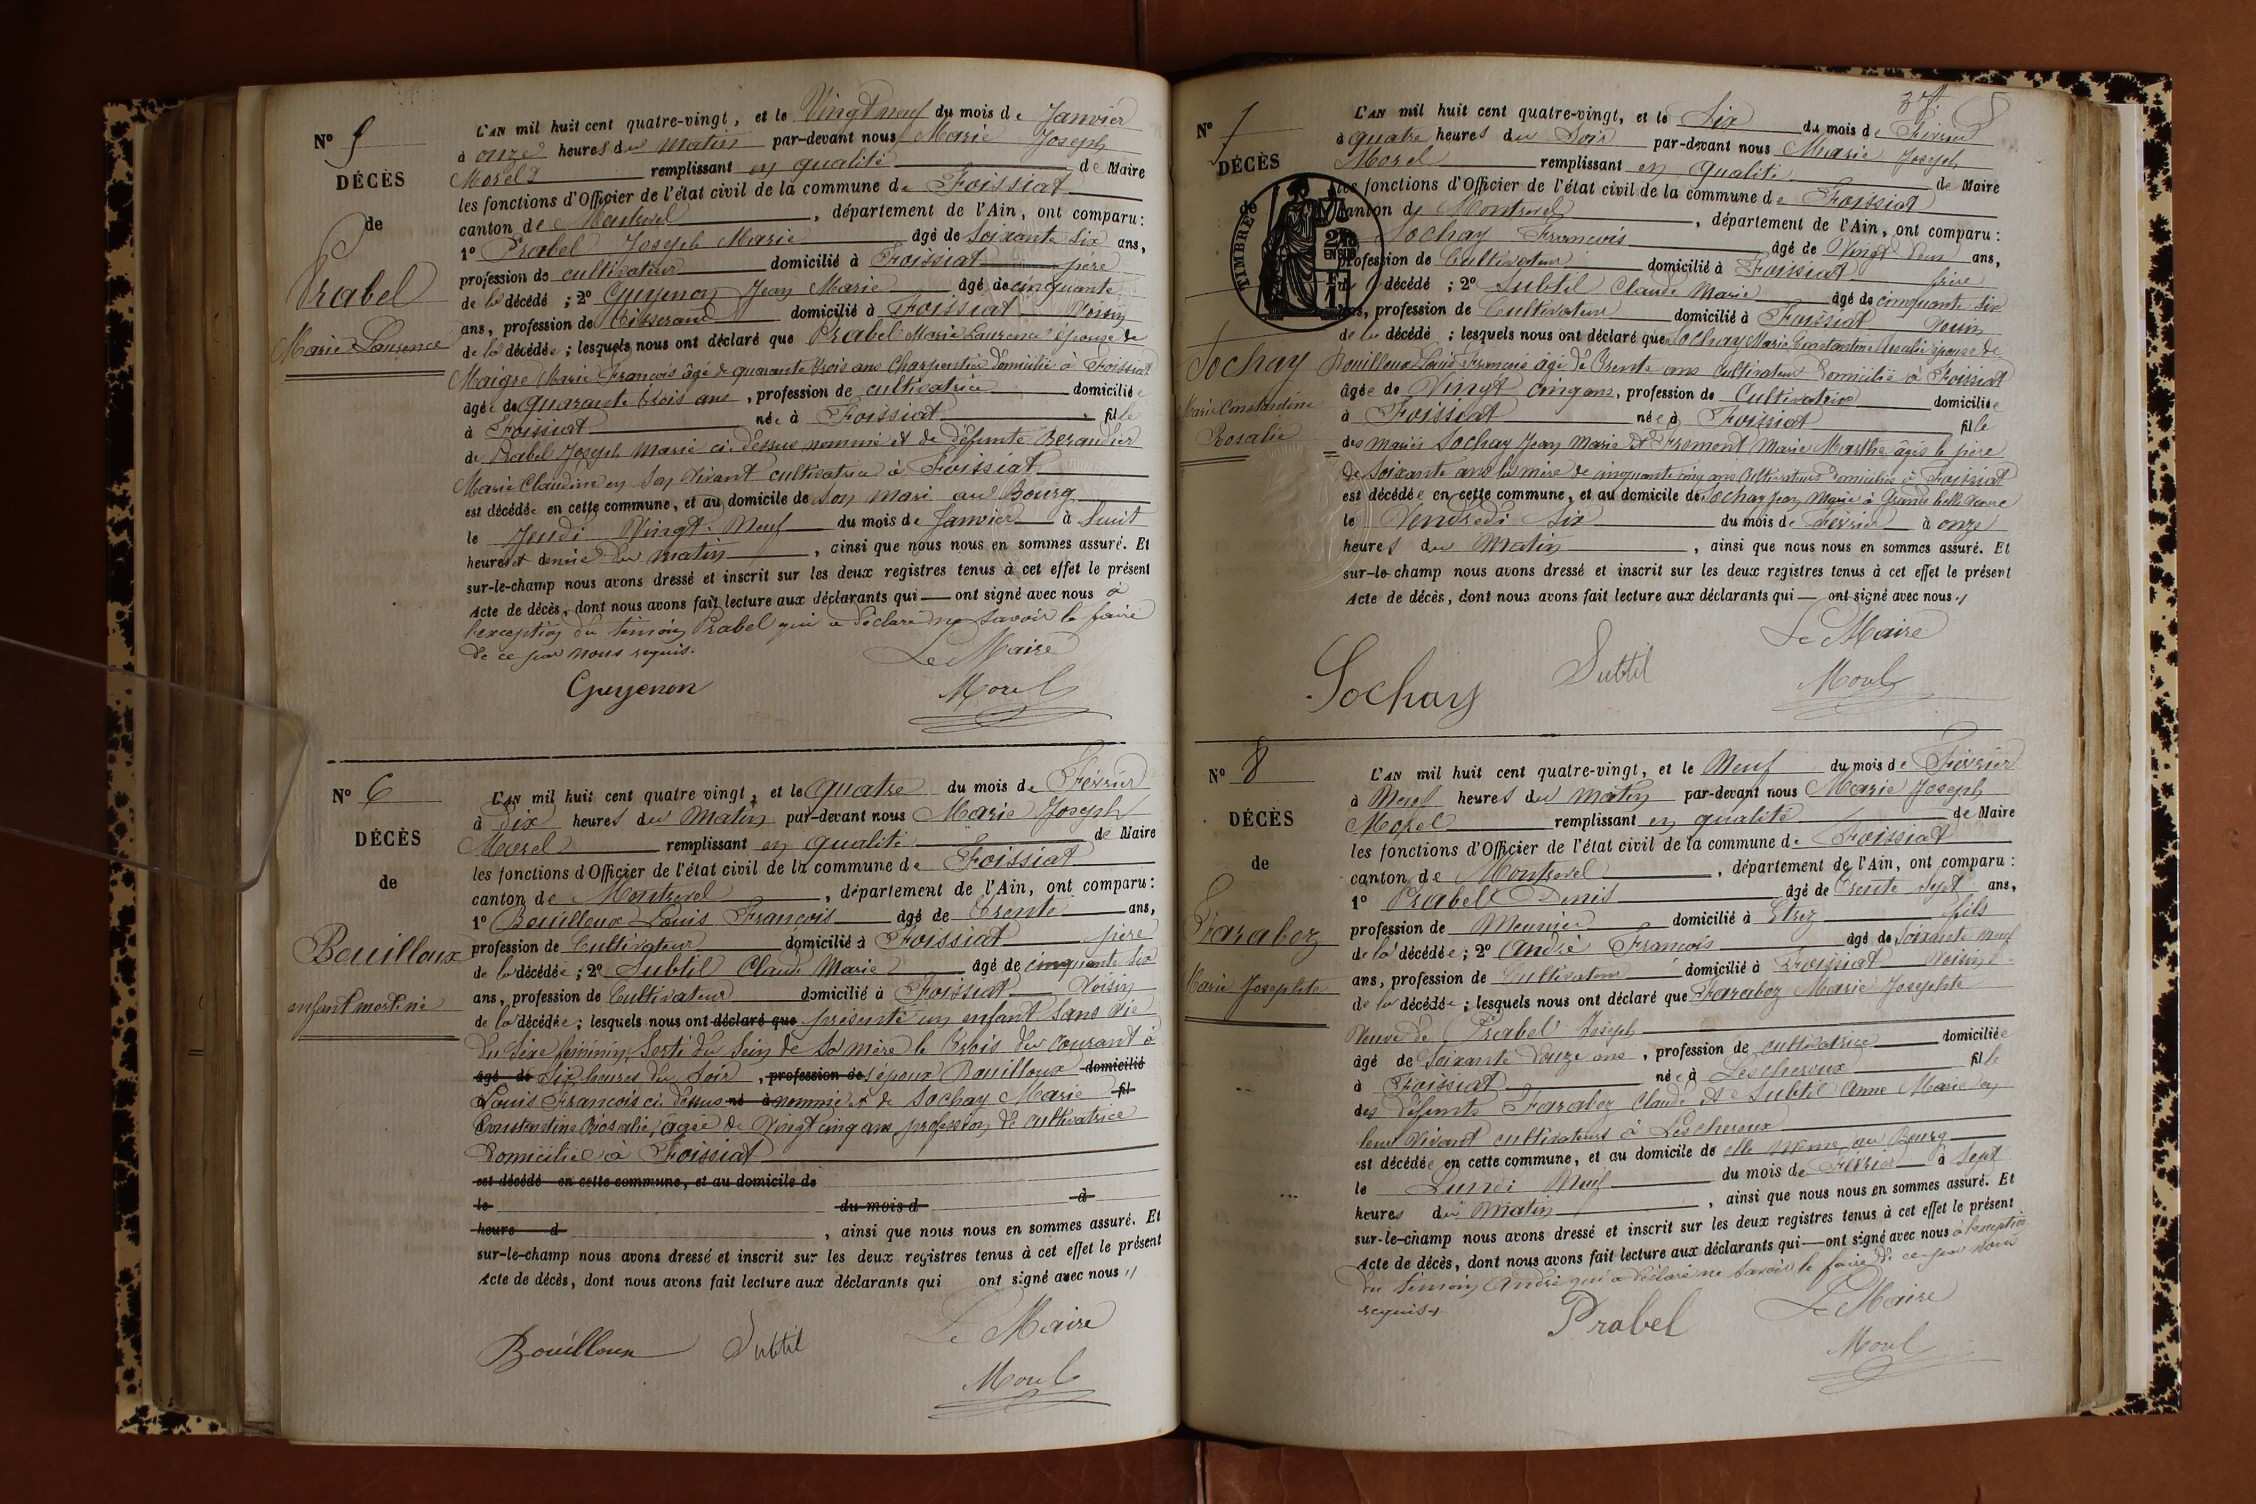 Nº 5
DÉCÈS
de
Prabel
Marie Laurence
L'AN mil huit cent quatre-vingt, et le Vingt neuf du mois de Janvier
à onze heures du matin par-devant nous Marie Joseph
Morel remplissant en qualité de Maire
les fonctions d'Officier de l'état civil de la commune de Foissiat
canton de Montrevel, département de l'Ain, ont comparu :
1º Prabel Joseph Marie âgé de Soixante six ans,
profession de cultivateur domicilié à Foissiat père
de la décédé ; 2º Guyenon Jean Marie âgé de cinquante
ans, profession de Tisserand domicilié à Foissiat Voisin
de la décédée ; lesquels nous ont déclaré que Prabel Marie Laurence épouse de
Maigre Marie François âgé de quarante trois ans Charpentier domicilié à Foissiat
âgée de quarante trois ans, profession de cultivatrice domiciliée
à Foissiat née à Foissiat, fille
de Prabel Joseph Marie ci-dessus nommé et de défunte Beraudier
Marie Claudine en son vivant cultivatrice à Foissiat
est décédée en cette commune, et au domicile de son mari au Bourg
le Jeudi Vingt-Neuf du mois de Janvier à huit
heures et demie du matin, ainsi que nous nous en sommes assuré. Et
sur-le-champ nous avons dressé et inscrit sur les deux registres tenus à cet effet le présent
Acte de décès, dont nous avons fait lecture aux déclarants qui — ont signé avec nous à
l'exception du témoin Prabel qui a déclaré ne savoir le faire
de ce par nous requis.
Le Maire
Guyenon Morel
Nº 6
DÉCÈS
de
Bouilloux
enfant mort né
L'AN mil huit cent quatre vingt, et le quatre du mois de Février
à Dix heures du Matin par-devant nous Marie Joseph
Morel remplissant en qualité de Maire
les fonctions d'Officier de l'état civil de la commune de Foissiat
canton de Montrevel, département de l'Ain, ont comparu :
1º Bouilloux Louis François âgé de Trente ans,
profession de Cultivateur domicilié à Foissiat père
de la décédée ; 2º Subtil Claude Marie âgé de cinquante six
ans, profession de Cultivateur domicilié à Foissiat Voisin
de la décédée ; lesquels nous ont déclaré que présenté un enfant sans vie
du sexe féminin, Sorti du Sein de Sa mère le trois du courant à
âgé de Six heures du Soir, profession de des époux Bouilloux domicilié
Louis François ci-dessus né à nommé et de Sochay Marie fil
Constantine Rosalie, agée de Vingt cinq ans profession de cultivatrice
Domiciliée à Foissiat
est décédé en cette commune, et au domicile de
le du mois d à
heure d, ainsi que nous nous en sommes assuré. Et
sur-le-champ nous avons dressé et inscrit sur les deux registres tenus à cet effet le présent
Acte de décès, dont nous avons fait lecture aux déclarants qui ont signé avec nous
Le Maire
Bouilloux Subtil
Morel
Nº 7
DÉCÈS
de
TIMBRE
Sochay
Marie Constantine
Rosalie
L'AN mil huit cent quatre-vingt, et le Six du mois de Février
à quatre heures du Soir par-devant nous Marie Joseph
Morel remplissant en qualité de Maire
les fonctions d'Officier de l'état civil de la commune de Foissiat
canton de Montrevel, département de l'Ain, ont comparu :
Sochay François âgé de Vingt deux ans,
profession de Cultivateur domicilié à Foissiat frère
décédé ; 2º Subtil Claude Marie âgé de cinquante six
ans, profession de Cultivateur domicilié à Foissiat Voisin
de la décédé ; lesquels nous ont déclaré que Sochay Marie Constantine Rosalie épouse de
Bouilloux Louis François âgé de Trente ans Cultivateur Domicilié à Foissiat
âgée de Vingt cinq ans, profession de Cultivatrice domiciliée
à Foissiat née à Foissiat fille
des mariés Sochay Jean Marie et Froment Marie Marthe âgés le père
de Soixante ans la mère de cinquante cinq ans Cultivateurs domiciliés à Foissiat
est décédée en cette commune, et au domicile de Sochay Jean Marie à
le Vendredi Six du mois de Février à onze
heures du Matin, ainsi que nous nous en sommes assuré. Et
sur-le-champ nous avons dressé et inscrit sur les deux registres tenus à cet effet le présent
Acte de décès, dont nous avons fait lecture aux déclarants qui — ont signé avec nous
Le Maire
Sochay Subtil Morel
Nº 8
DÉCÈS
de
Faraboz
Marie Josephte
L'AN mil huit cent quatre-vingt, et le Neuf du mois de Février
à Neuf heures du matin par-devant nous Marie Joseph
Morel remplissant en qualité de Maire
les fonctions d'Officier de l'état civil de la commune de Foissiat
canton de Montrevel, département de l'Ain, ont comparu :
1º Prabel Denis âgé de Trente sept ans,
profession de Meunier domicilié à Etrez fils
de la décédée ; 2º André François âgé de Soixante neuf
ans, profession de Cultivateur domicilié à Foissiat Voisin
de la décédée ; lesquels nous ont déclaré que Faraboz Marie Josephte
Veuve de Prabel Joseph
âgé de Soixante Douze ans, profession de cultivatrice domiciliée
à Foissiat née à Lescheroux fille
des défunts Faraboz Claude et Subtil Anne Marie en
leur Vivant cultivateurs à Lescheroux
est décédée en cette commune, et au domicile de elle même au Bourg
le Lundi Neuf du mois de Février à Sept
heures du Matin, ainsi que nous nous en sommes assuré. Et
sur-le-champ nous avons dressé et inscrit sur les deux registres tenus à cet effet le présent
Acte de décès, dont nous avons fait lecture aux déclarants qui — ont signé avec nous à l'exception
du témoin André qui a déclaré ne savoir le faire de ce par nous
requis
Le Maire
Prabel
Morel